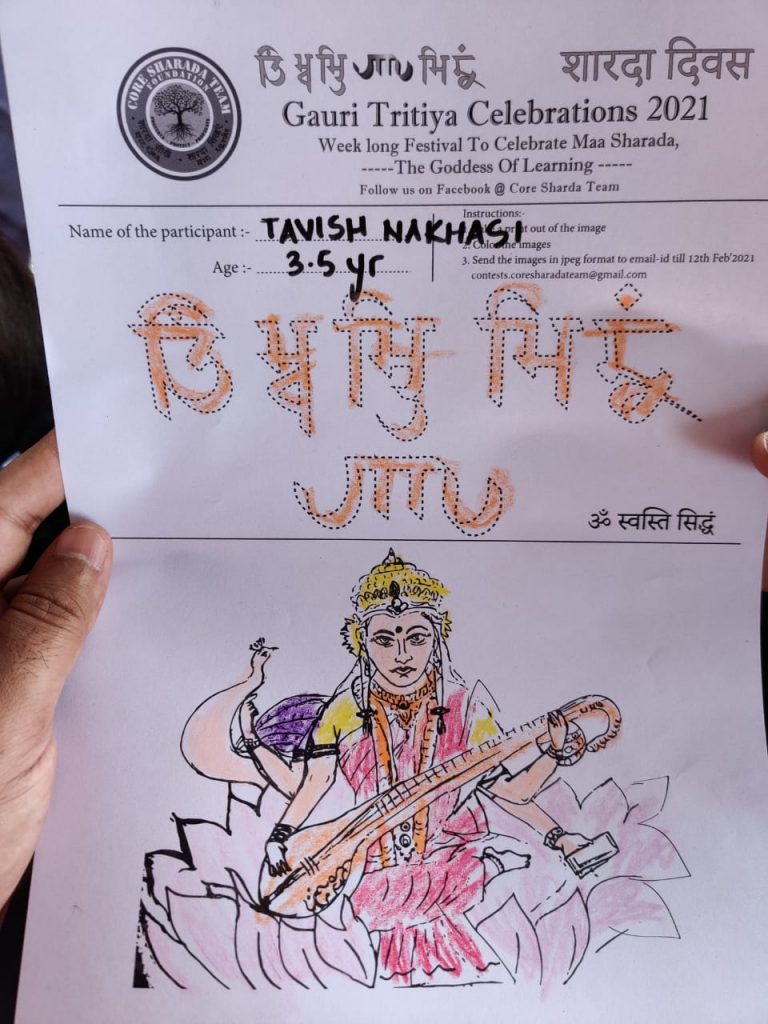 CORE SHARADA TEAM
FOUNDATION
शारदा दिवस
Gauri Tritiya Celebrations 2021
Week long Festival To Celebrate Maa Sharada,
-----The Goddess Of Learning -----
Follow us on Facebook @ Core Sharda Team
Name of the participant :- TAVISH NAKHASI
Age :- 3.5 yr
Instructions:-
print out of the image
2. the images
3. Send the images in jpeg format to email-id till 12th Feb'2021
contests.coresharadateam@gmail.com
ॐ स्वस्ति सिद्धं